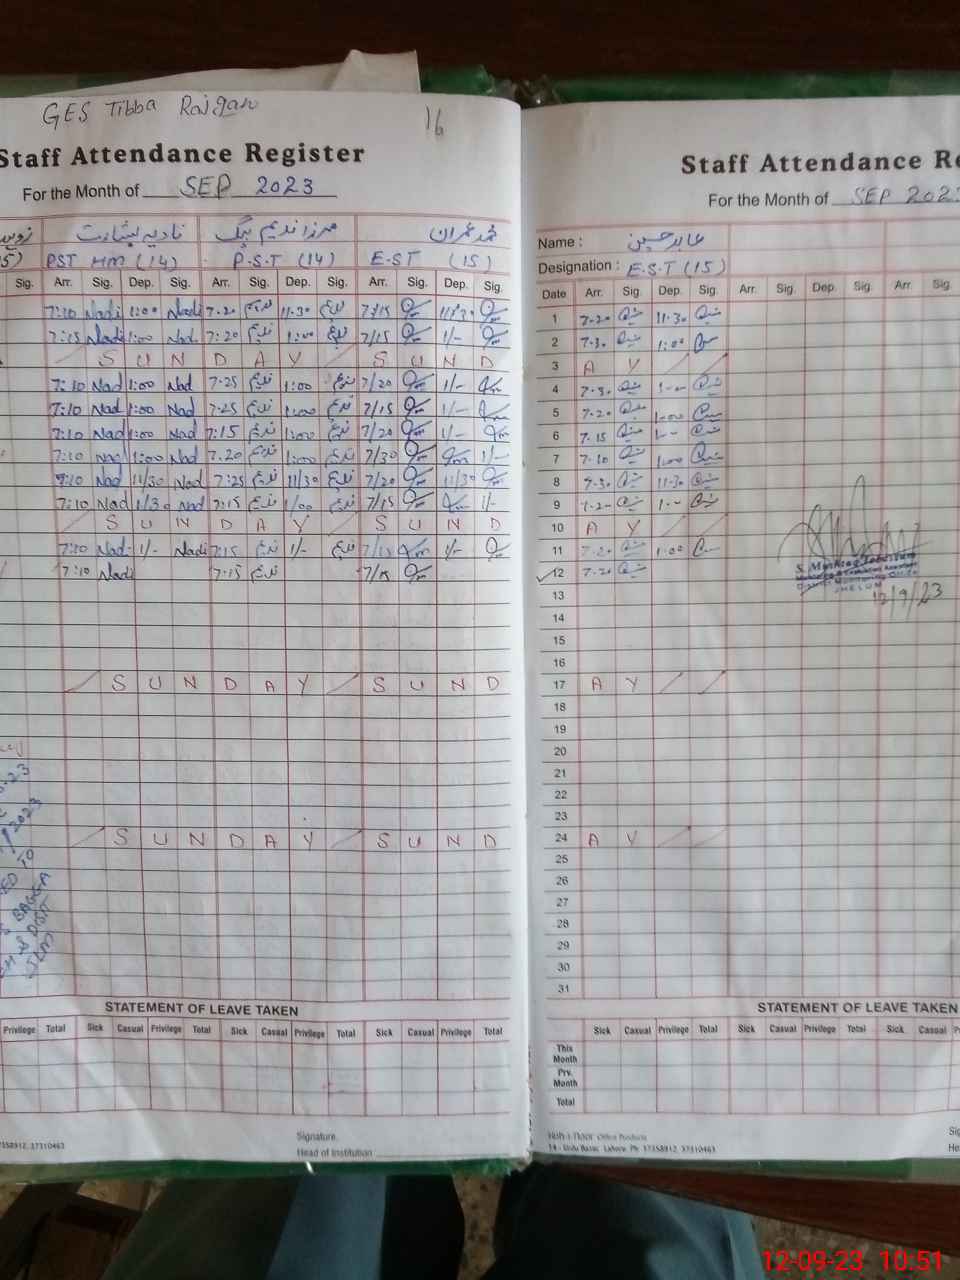 GES Tibba
16
Staff Attendance Register
For the Month of SEP 2023
نادیہ بشارت مرزا ندیم بیگ محمد عمران
5) PST HM (14) P.S.T (14) E.ST (15)
Sig. Arr. Sig. Dep. Sig. Arr. Sig. Dep. Sig. Arr. Sig. Dep. Sig.
7:10 Nadi 1:00 Nadi 7.20 ندیم 11.30 ندیم 7/15 11/30
7:15 Nadi 1:00 Nad 7:20 ندیم 1:00 ندیم 7/15 1/-
S U N D A Y S U N D
7:10 Nad 1:00 Nad 7.25 ندیم 1:00 ندیم 7/20 1/-
7:10 Nad 1:00 Nad 7.25 ندیم 1:00 ندیم 7/15 1/-
7:10 Nad 1:00 Nad 7:15 ندیم 1:00 ندیم 7/20 1/-
7:10 Nad 1:00 Nad 7.20 ندیم 1:00 ندیم 7/30 1/-
7:10 Nad 11/30 Nad 7:25 ندیم 11/30 ندیم 7/20 11/30
7:10 Nad 1/30 Nad 7:15 ندیم 1/00 ندیم 7/15 1/-
S U N D A Y S U N D
7:10 Nad 1/- Nadi 7:15 ندیم 1/- ندیم 7/15 1/-
7:10 Nadi 7.15 ندیم 7/15
S U N D A Y S U N D
S U N D A Y S U N D
2023
TO
BAGGA
STATEMENT OF LEAVE TAKEN
Privilege Total Sick Casual Privilege Total Sick Casual Privilege Total Sick Casual Privilege Total
Signature.
7358912, 37310463
Head of Institution
Staff Attendance Re
For the Month of SEP 202
Name : عابد حسین
Designation : E.S.T (15)
Date Arr. Sig. Dep. Sig. Arr. Sig. Dep. Sig. Arr. Sig.
1 7.20 11.30
2 7.30 1:00
3 A Y
4 7.30 1.00
5 7.20 1:00
6 7.15 1.00
7 7.10 1:00
8 7.30 11.30
9 7.20 1.00
10 A Y
11 7.20 1:00
12 7.20
S. Mushtaq
JHELUM
12/9/23
13
14
15
16
17 A Y
18
19
20
21
22
23
24 A Y
25
26
27
28
29
30
31
STATEMENT OF LEAVE TAKEN
Sick Casual Privilege Total Sick Casual Privilege Total Sick Casual P
This Month
Prv. Month
Total
Office Products
14 - Urdu Bazar, Lahore. Ph: 37358912, 37310463
Sig
He
12-09-23 10:51